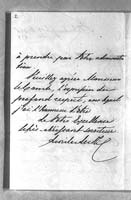 2.
à prendre par votre administra
tion
Veuillez agréer Monsieur
le Comte, l'expression du
profond respect, avec lequel
j'ai l'honneur d'être
de Votre Excellence
le très obéissant serviteur